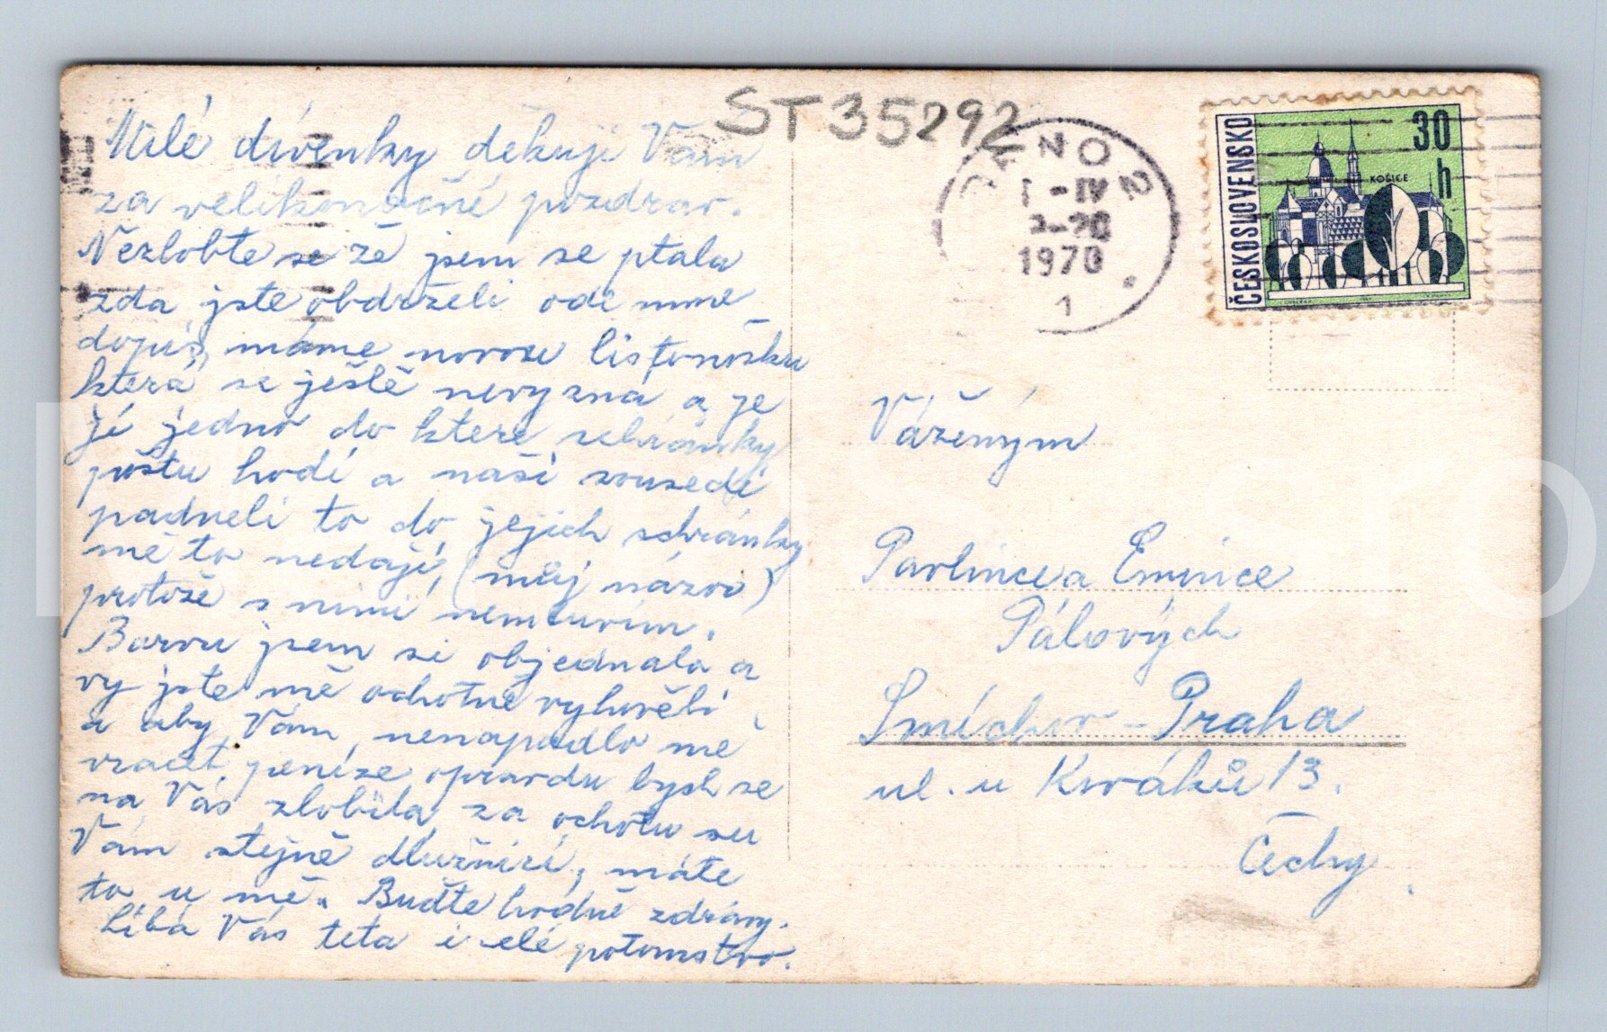 ST 35292
Milé dívenky děkuji Vám
za velikonočné pozdrav.
Nezlobte se že jsem se ptala
zda jste obdrželi ode mne
dopis, máme novou listonošku
která se ještě nevyzná a je
jí jedno do které schránky
poštu hodí a naši sousedé
padneli to do jejich schránky
mě to nedají, (můj názor)
protože s nimi nemluvím.
Barvu jsem si objednala a
vy jste mě ochotně vyhověli
a aby Vám nenapadlo mě
vracet peníze opravdu bych se
na Vás zlobila, za ochotu su
Vám stejně dlužnicí, máte
to u mě. Buďte hodně zdrávy.
Líbá Vás teta i celé potomstvo.
BRNO 2
1 - IV
1970
1
ČESKOSLOVENSKO
30
h
KOŠICE
Váženým
Pavlince a Emince
Pálových
Smíchov - Praha
ul. u Kroáků 13.
Čechy